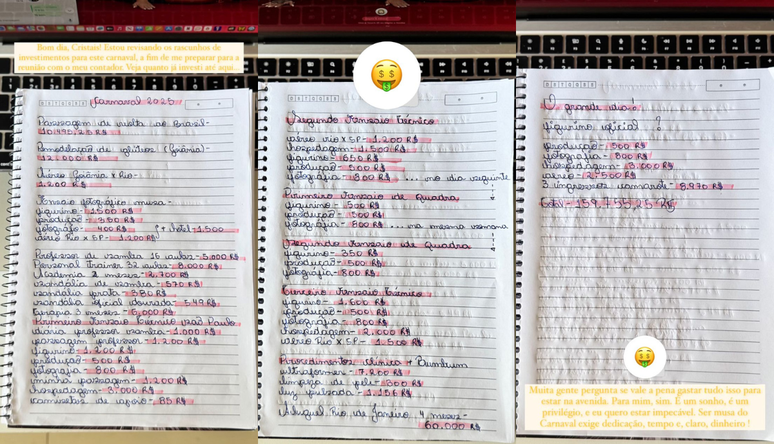 Bom dia, Cristais! Estou revisando os rascunhos de
investimentos para este carnaval, a fim de me preparar para a
reunião com o meu contador. Veja quanto já investi até aqui...
Carnaval 2025
Passagem de volta ao Brasil-
10.495,25 R$
Remodelação de glúteos (Goiânia)-
12.000 R$
Aéreo Goiânia x Rio-
1.200 R$
Ensaio fotográfico musa-
figurino- 1.500 R$
produção- 350 R$
fotógrafo- 400 R$ + hotel-1.500
aéreo Rio x SP- 1.200 R$
Professor de samba 16 aulas- 5.000 R$
Personal trainer 32 aulas- 8.000 R$
Academia 2 meses- 2.700 R$
sandália de samba- 570 R$
sandália prata- 380 R$
sandália oficial dourada- 549 R$
terapia 3 meses- 6.000 R$
Primeiro Ensaio Técnico São Paulo
diária professor samba- 1.000 R$
passagem professor- 1.200 R$
figurino- 1.200 R$
produção- 500 R$
fotografia- 800 R$
minha passagem- 1.200 R$
hospedagem- 3.000 R$
camisetas de apoio- 85 R$
Segundo Ensaio Técnico
aéreo rio x SP- 1.200 R$
hospedagem- 1.500 R$
figurino- 650 R$
produção- 500 R$
fotografia- 800 R$ ... no dia seguinte
Primeiro Ensaio de Quadra
figurino- 500 R$
produção- 500 R$
fotografia- 800 R$ ... na mesma semana
Segundo Ensaio de Quadra
figurino- 350 R$
produção- 500 R$
fotografia- 800 R$
Terceiro Ensaio Técnico
figurino- 1.600 R$
produção- 500 R$
fotografia- 800 R$
hospedagem- 2.000 R$
aéreo Rio x SP- 1.500 R$
Procedimentos clínica + Bumbum
ultraformer- 7.200 R$
limpeza de pele- 300 R$
luz pulsada- 1.156 R$
Aluguel Rio de Janeiro 4 meses-
60.000 R$
O grande dia
figurino oficial ?
produção- 500 R$
fotografia- 800 R$
hospedagem- 3.000 R$
aéreo- 2.500 R$
3 ingressos camarote- 8.970 R$
total- 159.755,25 R$
Muita gente pergunta se vale a pena gastar tudo isso para
estar na avenida. Para mim, sim. É um sonho, é um
privilégio, e eu quero estar impecável. Ser musa do
Carnaval exige dedicação, tempo e, claro, dinheiro !